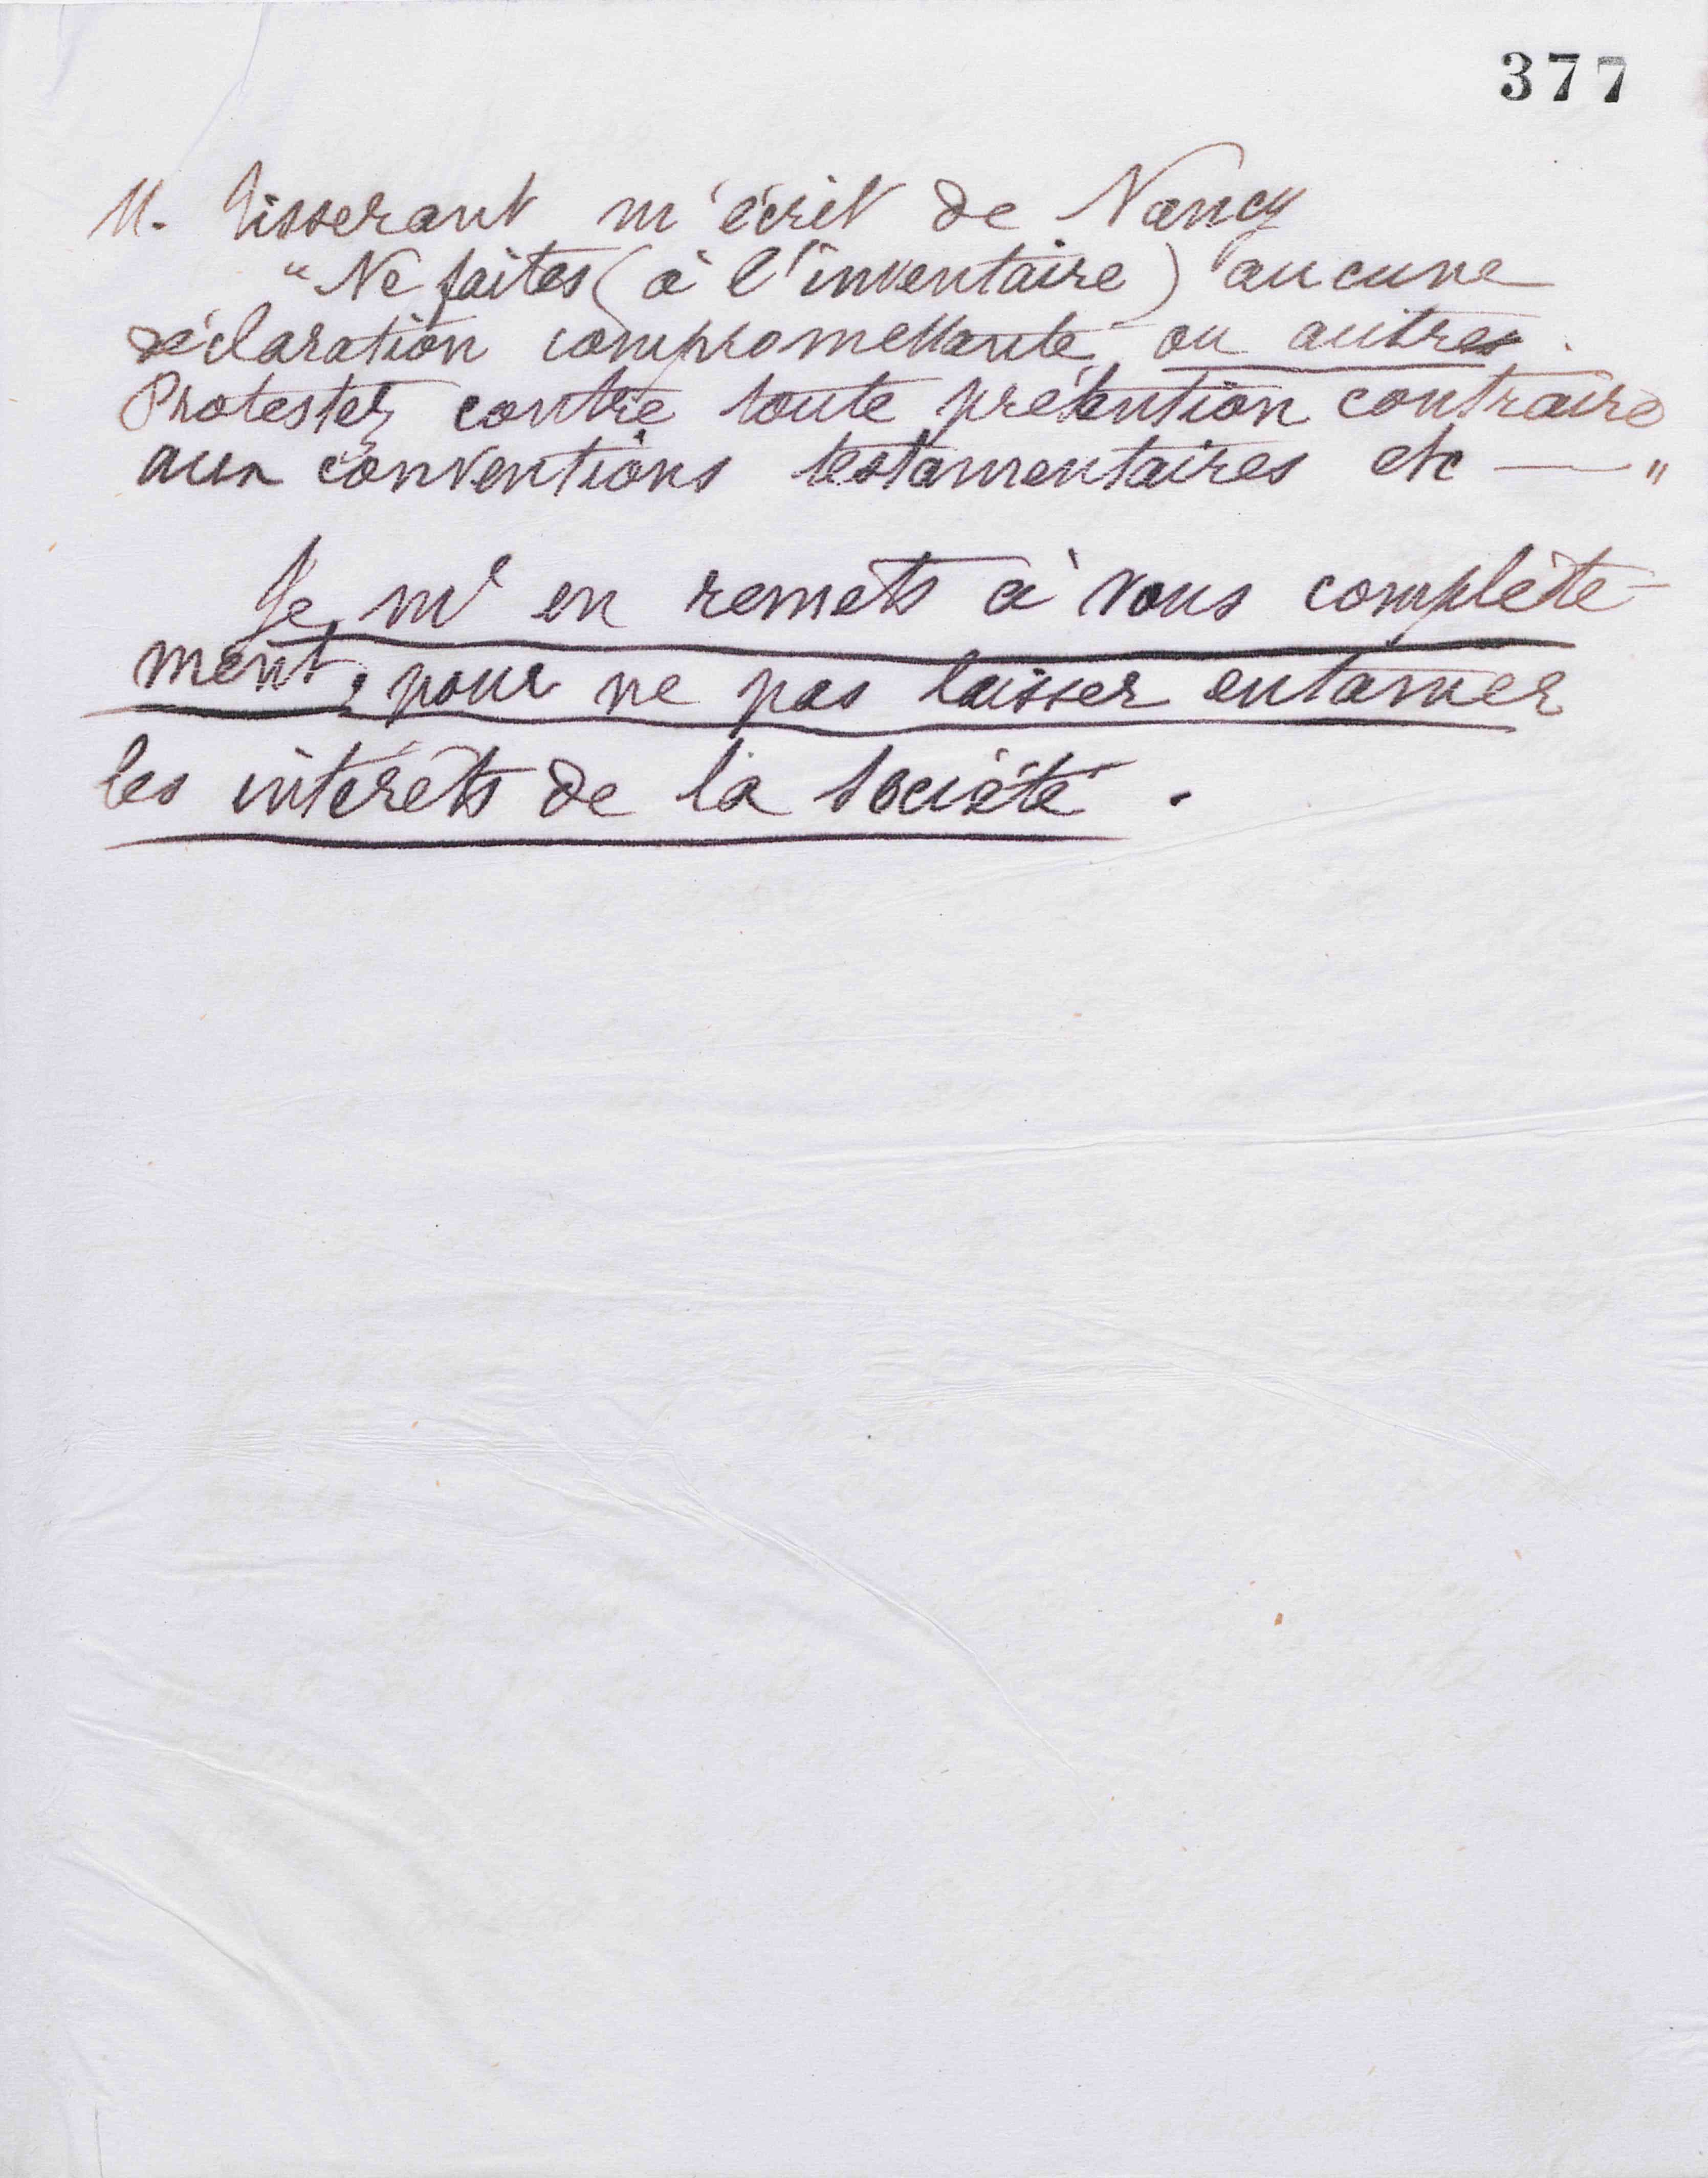 377
M. Tisserant m'écrit de Nancy
"Ne faites (à l'inventaire) aucune
déclaration compromettante ou autres.
Protestez contre toute prétention contraire
aux conventions testamentaires etc — "
Je m'en remets à vous complète-
ment, pour ne pas laisser entamer
les intérêts de la Société.